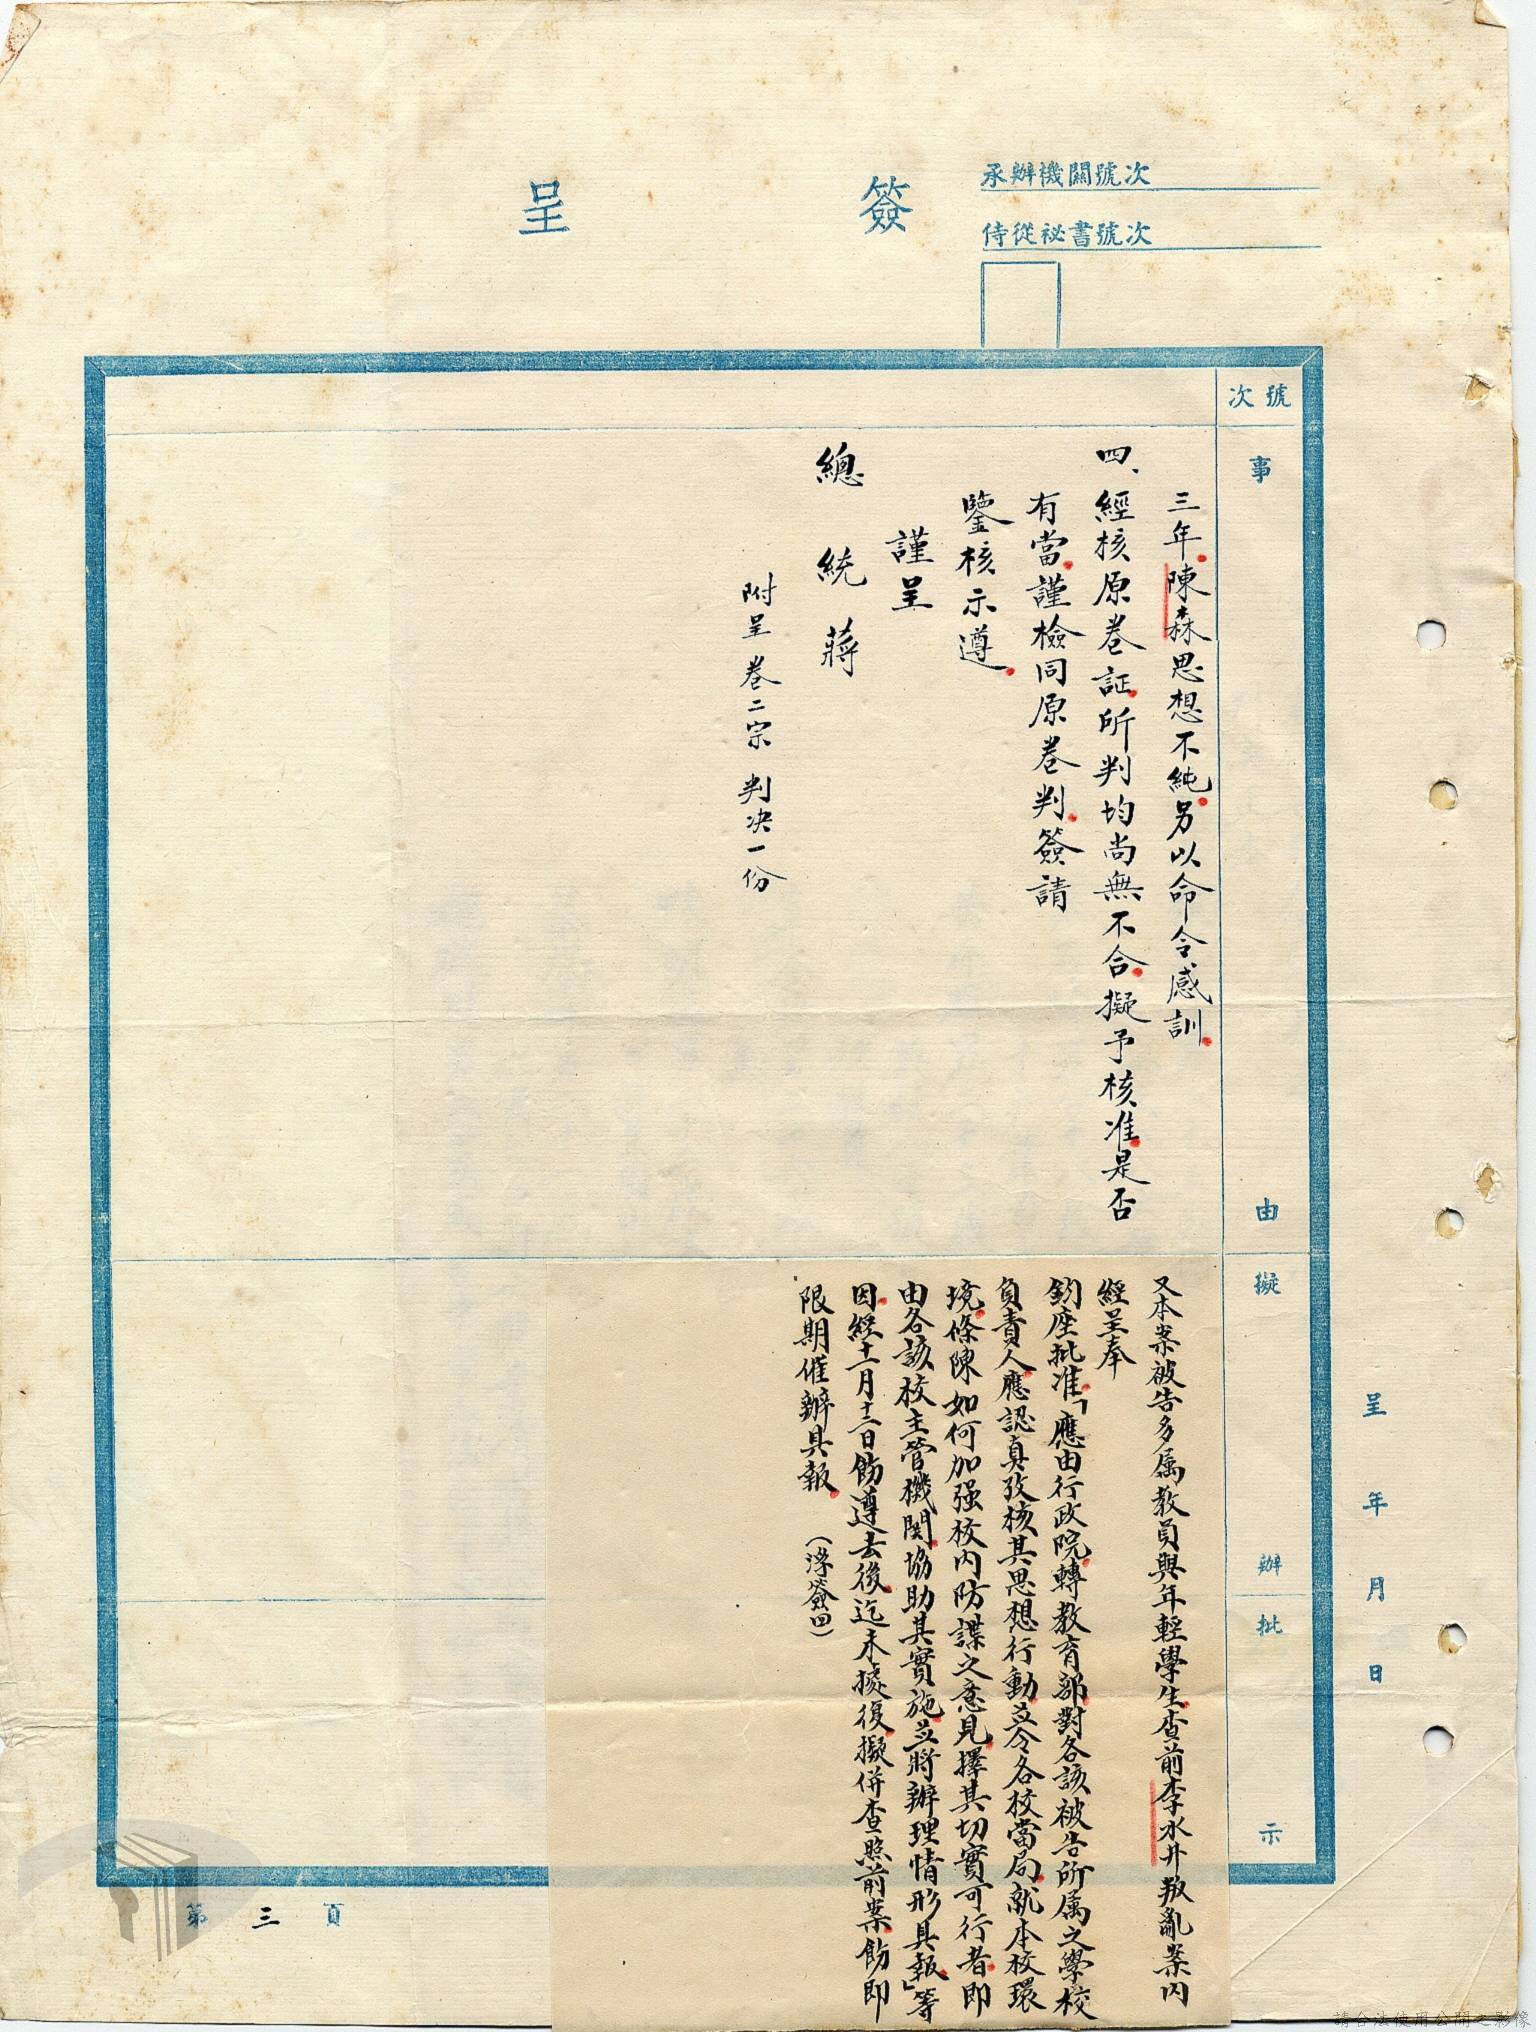 簽呈
承辦機關號次
侍從祕書號次
號次
事由
擬辦
批示
呈 年 月 日
三年陳森思想不純另以命令感訓
四、經核原卷証所判均尚無不合擬予核准是否
有當謹檢同原卷判簽請
鑒核示遵
謹呈
總統蔣
附呈卷二宗判决一份
又本案被告多属教員與年輕學生查前李水井叛亂案内
經呈奉
鈞座批准「應由行政院轉教育部對各該被告所属之學校
負責人應認真攷核其思想行動並令各校當局就本校環
境條陳如何加强校内防諜之意見擇其切實可行者即
由各該校主管機関協助其實施並將辦理情形具報」等
因經十一月十三日飭遵去後迄未據復擬併查照前案飭即
限期催辦具報
（浮簽四）
第三頁
請合法使用公開之影像